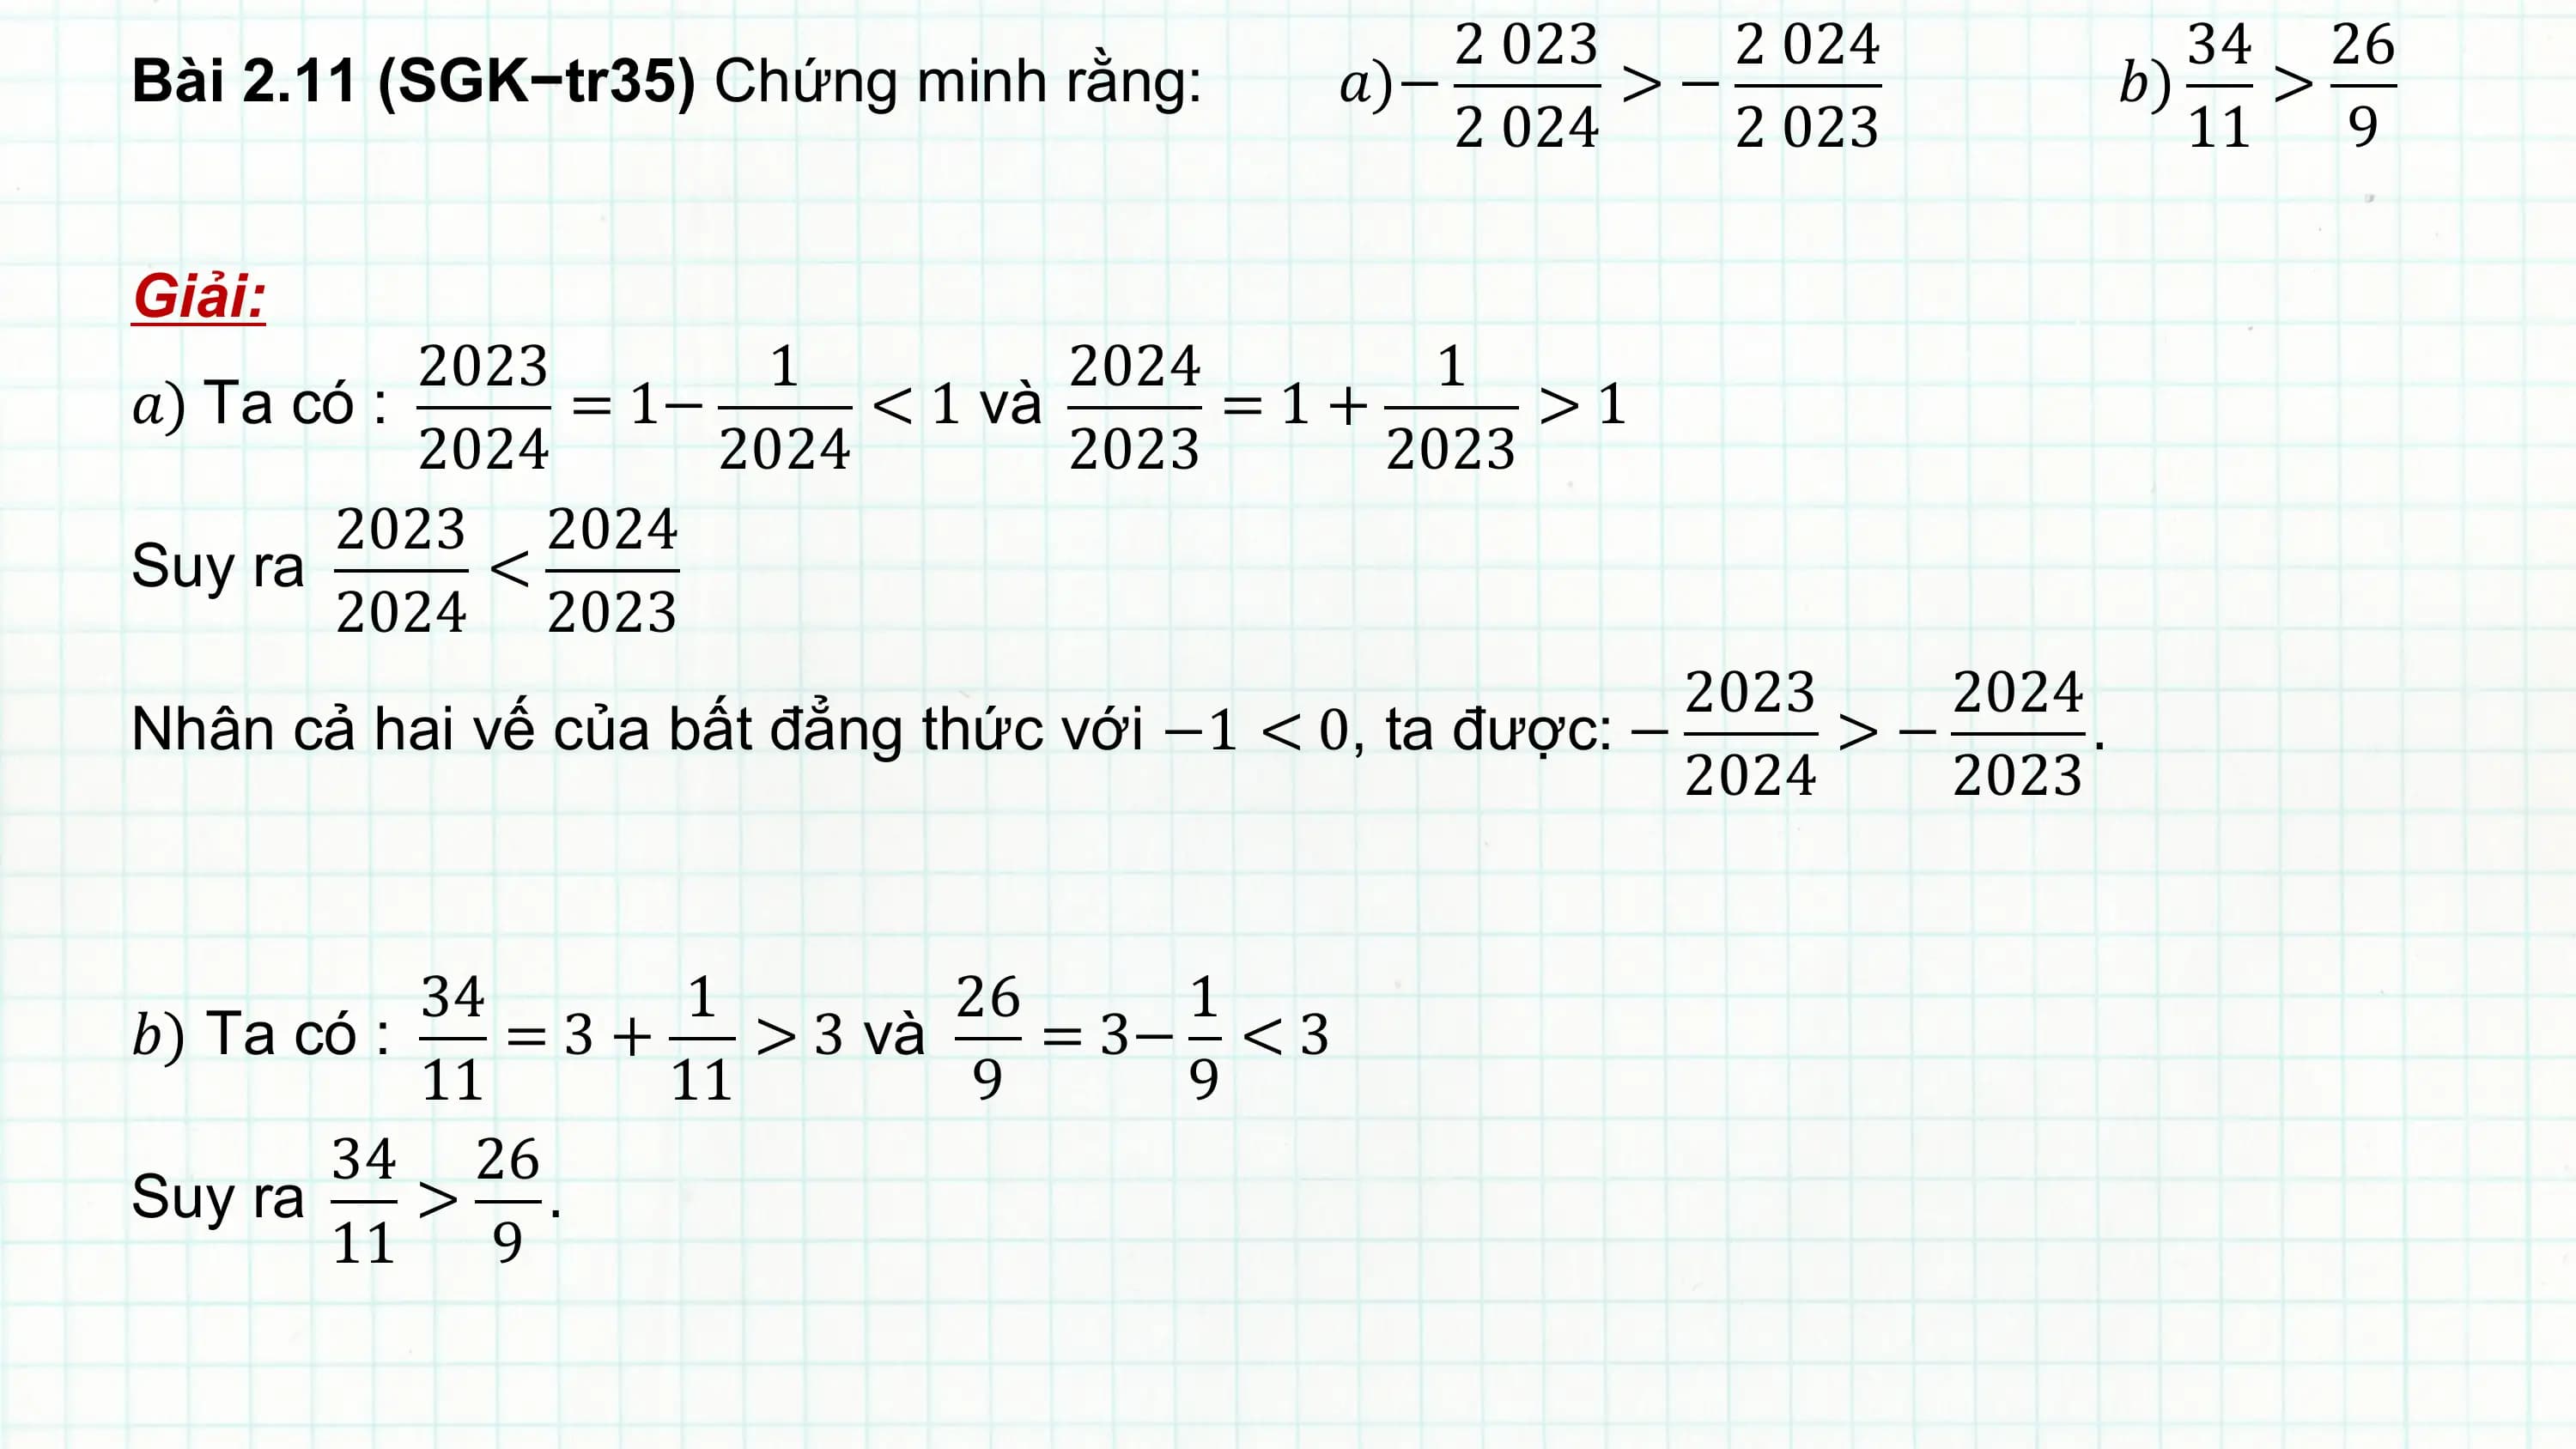 Bài 2.11 (SGK−tr35) Chứng minh rằng: a)− 2 023/2 024 > − 2 024/2 023 b) 34/11 > 26/9
Giải:
a) Ta có : 2023/2024 = 1− 1/2024 < 1 và 2024/2023 = 1 + 1/2023 > 1
Suy ra 2023/2024 < 2024/2023
Nhân cả hai vế của bất đẳng thức với −1 < 0, ta được: − 2023/2024 > − 2024/2023.
b) Ta có : 34/11 = 3 + 1/11 > 3 và 26/9 = 3− 1/9 < 3
Suy ra 34/11 > 26/9.